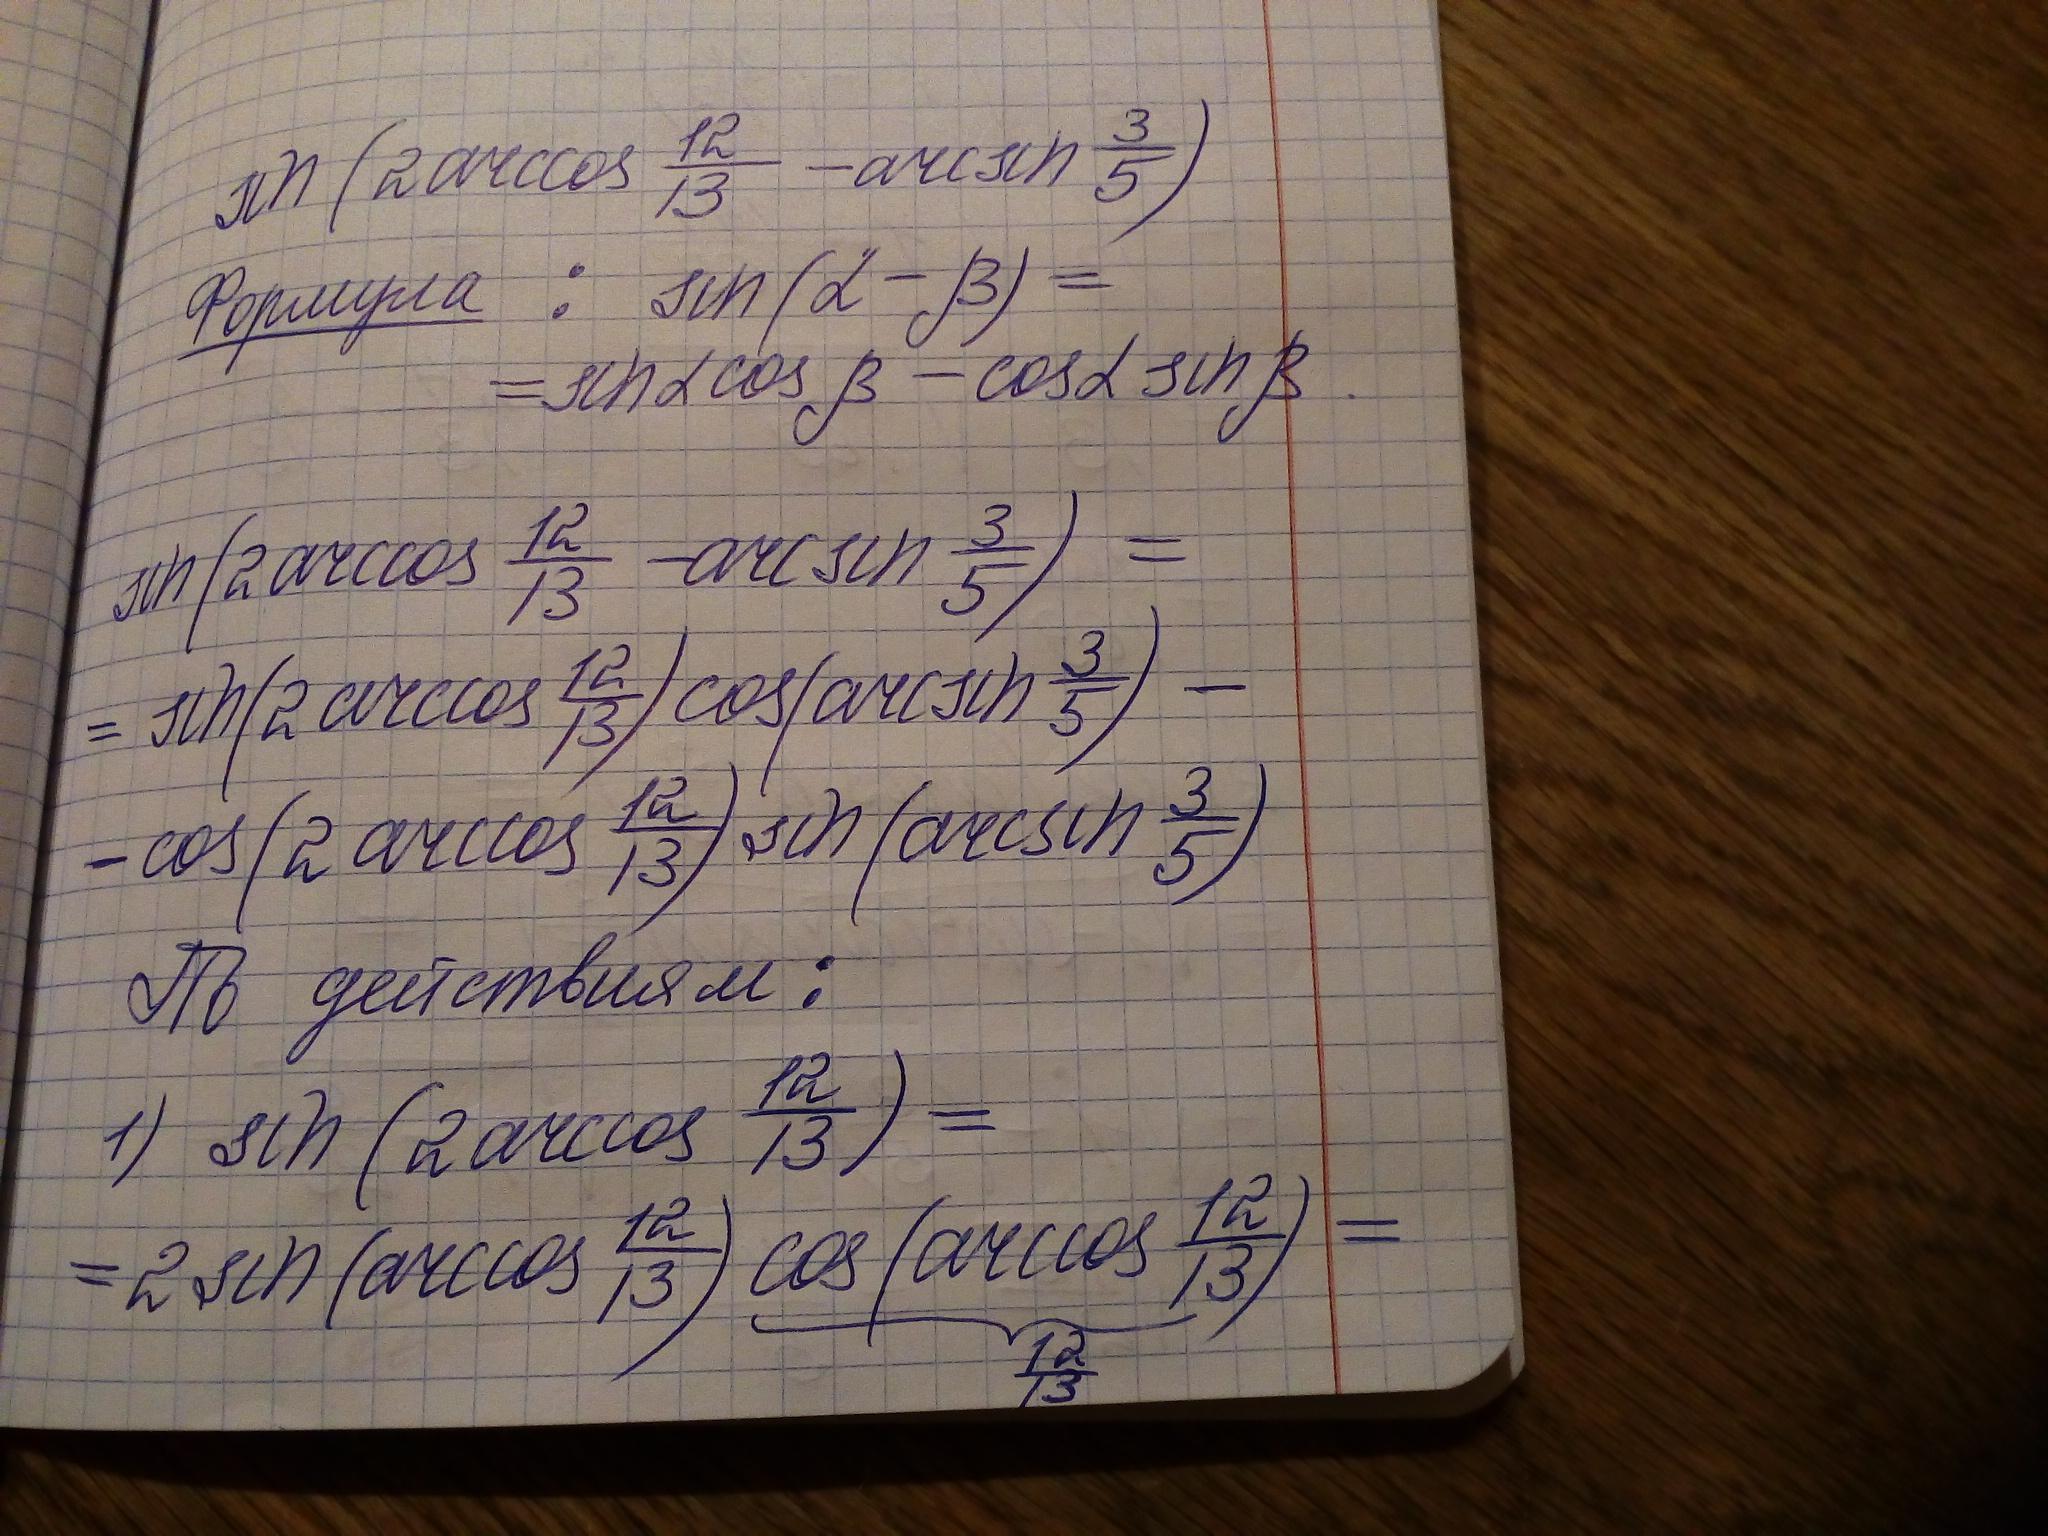 sin(2arccos 12/13 - arcsin 3/5)
Формула : sin(α - β) =
= sinα cosβ - cosα sinβ.
sin(2arccos 12/13 - arcsin 3/5) =
= sin(2arccos 12/13) cos(arcsin 3/5) -
- cos(2arccos 12/13) sin(arcsin 3/5)
По действиям:
1) sin(2arccos 12/13) =
= 2sin(arccos 12/13) cos(arccos 12/13) =
12/13